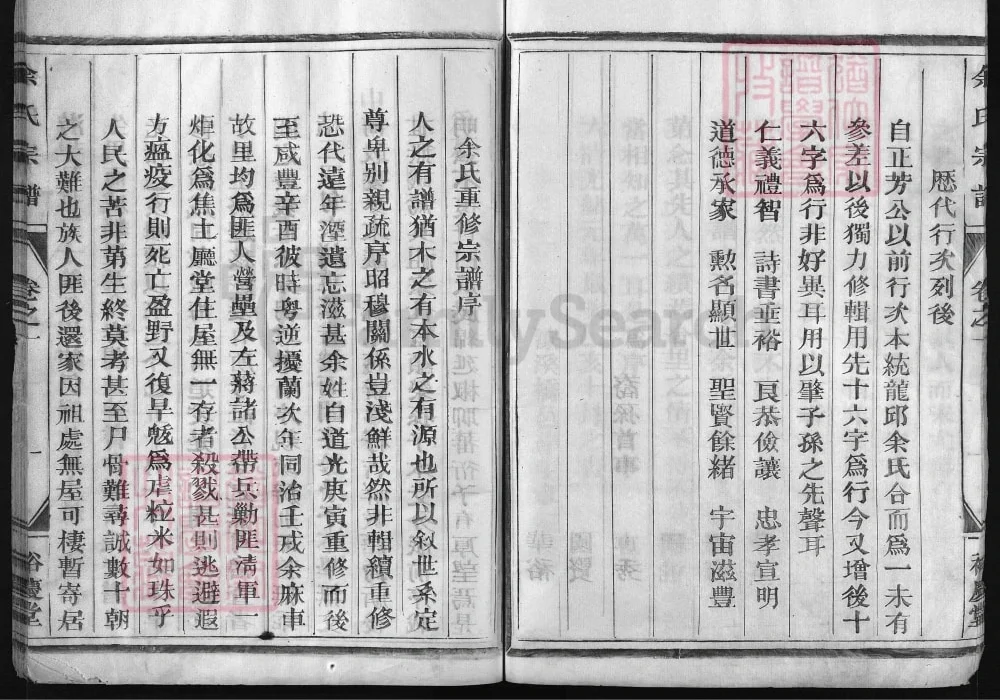 余氏宗譜 卷之一 裕慶堂
歴代行次列後
自正芳公以前行次本統龍邱余氏合而爲一未有
參差以後獨力修輯用先十六字爲行今又增後十
六字爲行非好異耳用以肇子孫之先聲耳
仁義禮智 詩書垂裕 良恭儉讓 忠孝宣明
道德承家 勲名顯世 聖賢餘緒 宇宙滋豐
余氏重修宗譜序
人之有譜猶木之有本水之有源也所以叙世系定
尊卑别親疏序昭穆關係豈淺鮮哉然非輯續重修
恐代遠年湮遺忘滋甚余姓自道光庚寅重修而後
至咸豐辛酉彼時粤逆擾蘭次年同治壬戌余麻車
故里均爲匪人營壘及左蔣諸公帶兵勦匪凊軍一
炬化爲焦土廳堂住屋無一存者殺戮甚則逃避遐
方瘟疫行則死亡盈野又復旱魃爲虐粒米如珠乎
人民之苦非苐生終莫考甚至尸骨難尋誠數十朝
之大難也族人匪後還家因祖處無屋可棲暫寄居
余氏宗譜 卷之一 一 裕慶堂
FamilySearch